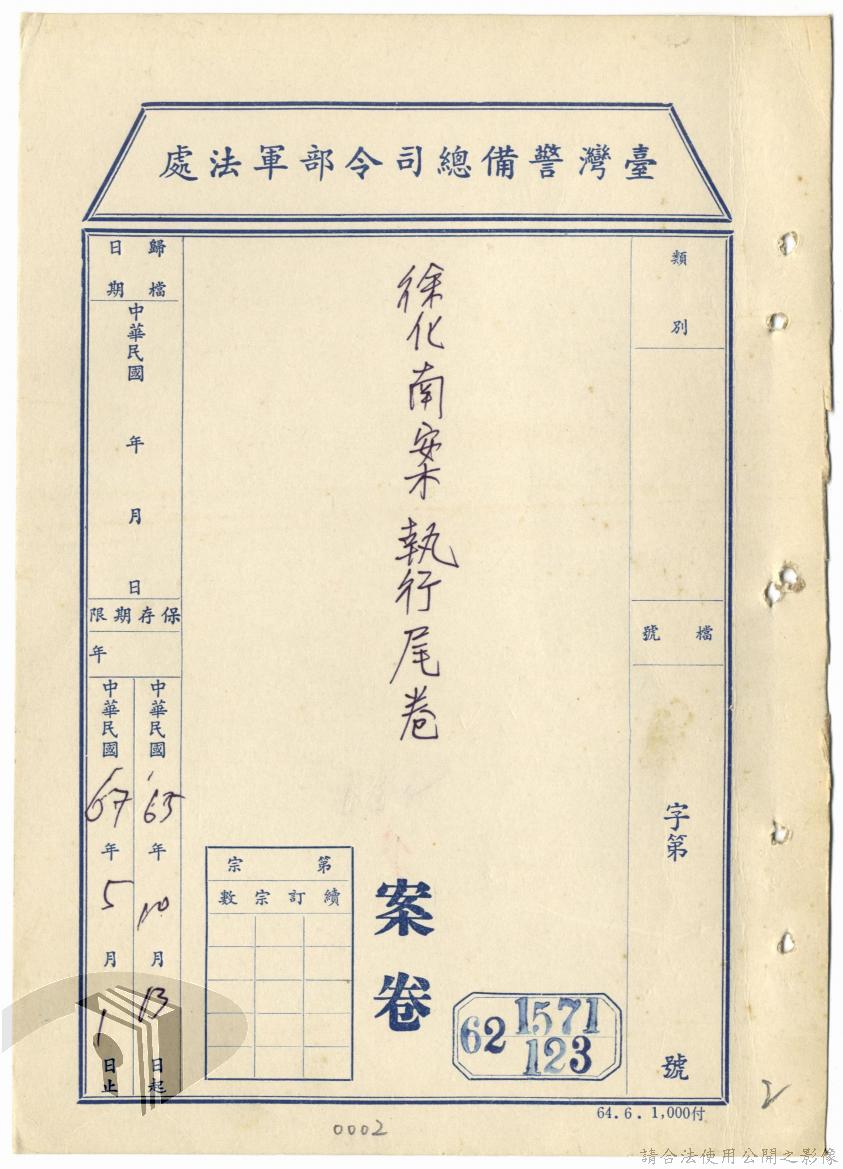 臺灣警備總司令部軍法處
類別
檔號
字第
號
徐化南案執行尾卷
案卷
第宗
續訂宗數
62 1571
123
歸檔日期
中華民國 年 月 日
保存期限
年
中華民國65年10月13日起
中華民國67年5月1日止
64.6.1,000付
0002
2
請合法使用公開之影像